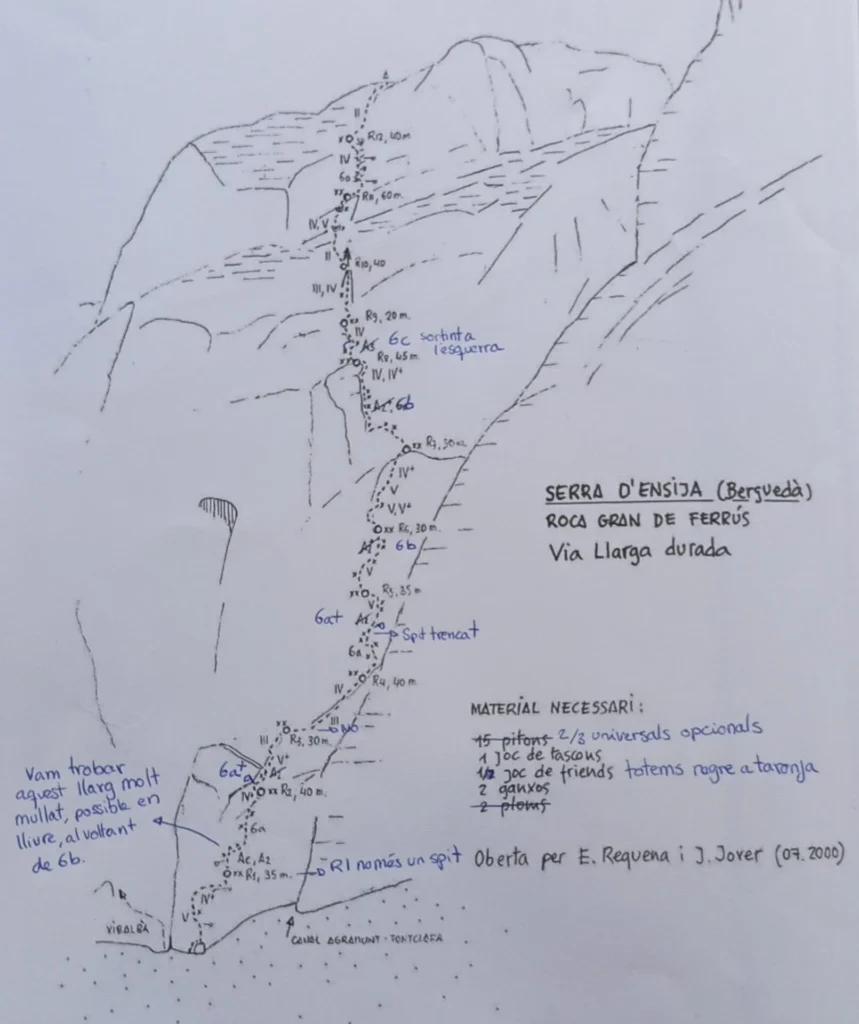 II
R12, 40 m.
IV
6a
R11, 60 m.
IV, V
II
R10, 40
III, IV
R9, 20 m.
IV
A3 6c sortint a
l'esquerra
R8, 45 m.
IV, IV+
A2 6b
R7, 30 m.
IV+
V
V, V+
R6, 30 m.
A1 6b
V
R5, 35 m
V
6a+ A1
Spit trencat
6a
R4, 40 m.
IV
III
NO
R3, 30 m.
III
V+
6a+ A1
IV
R2, 40 m.
6a
Ac, A2
R1, 35 m.
R1 només un spit
IV+
V
Vam trobar
aquest llarg molt
mullat, possible en
lliure, al voltant
de 6b.
VIRALBÀ
CANAL AGRAMUNT - TONTCLAFA
SERRA D'ENSIJA (Berguedà)
ROCA GRAN DE FERRÚS
Via Llarga durada
MATERIAL NECESSARI:
15 pitons 2/3 universals opcionals
1 joc de tascons
1/2 joc de friends totems negre a taronja
2 ganxos
2 ploms
Oberta per E. Requena i J. Jover (07.2000)